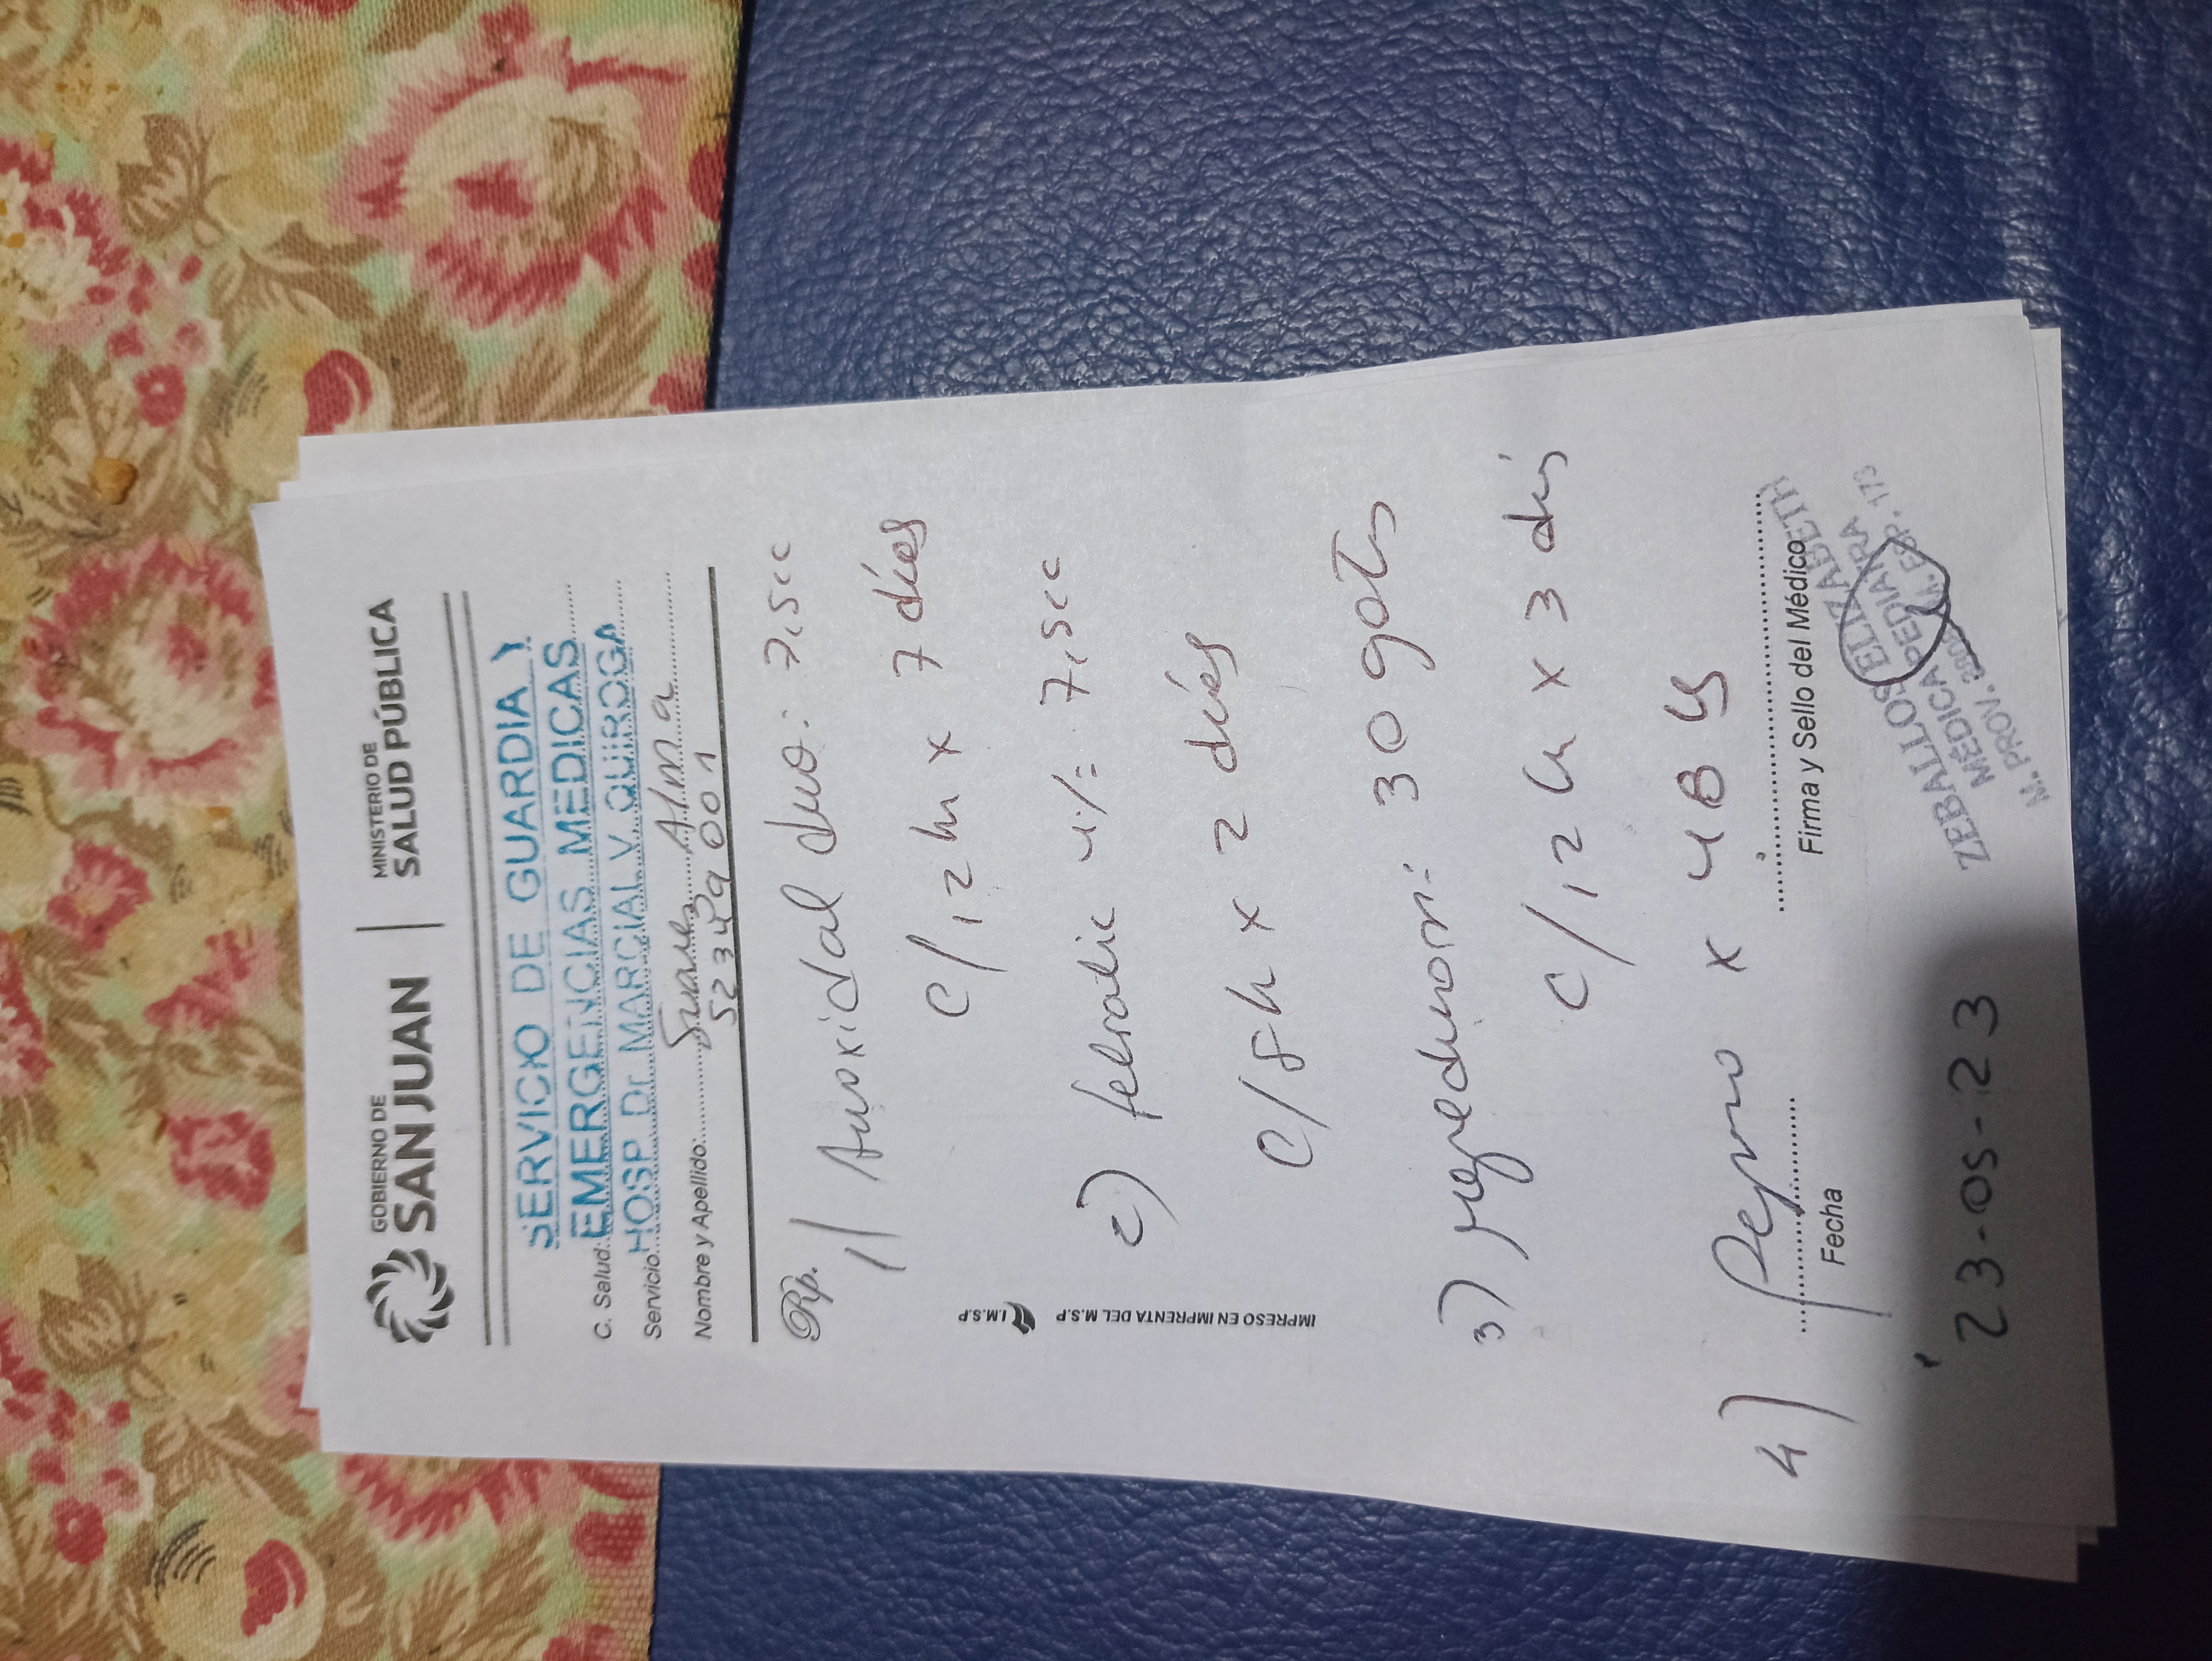 GOBIERNO DE
SAN JUAN
MINISTERIO DE
SALUD PÚBLICA
SERVICIO DE GUARDIA Y
C. Salud: EMERGENCIAS MEDICAS
Servicio: HOSP Dr. MARCIAL V. QUIROGA
Nombre y Apellido: Suarez Alma
52349001
Rp.
1) Amoxidal duo: 7,5cc
c/12 h x 7 días
2) febratic 4%: 7,5cc
c/8h x 2 días
3) 30 gots
c/12 h x 3 dis
4) Reposo x 48 hs
IMPRESO EN IMPRENTA DEL M.S.P I.M.S.P
Fecha
Firma y Sello del Médico
23-05-23
ZEBALLOS ELIZABETH
MÉDICA PEDIATRA
M. PROV. ESP. 173